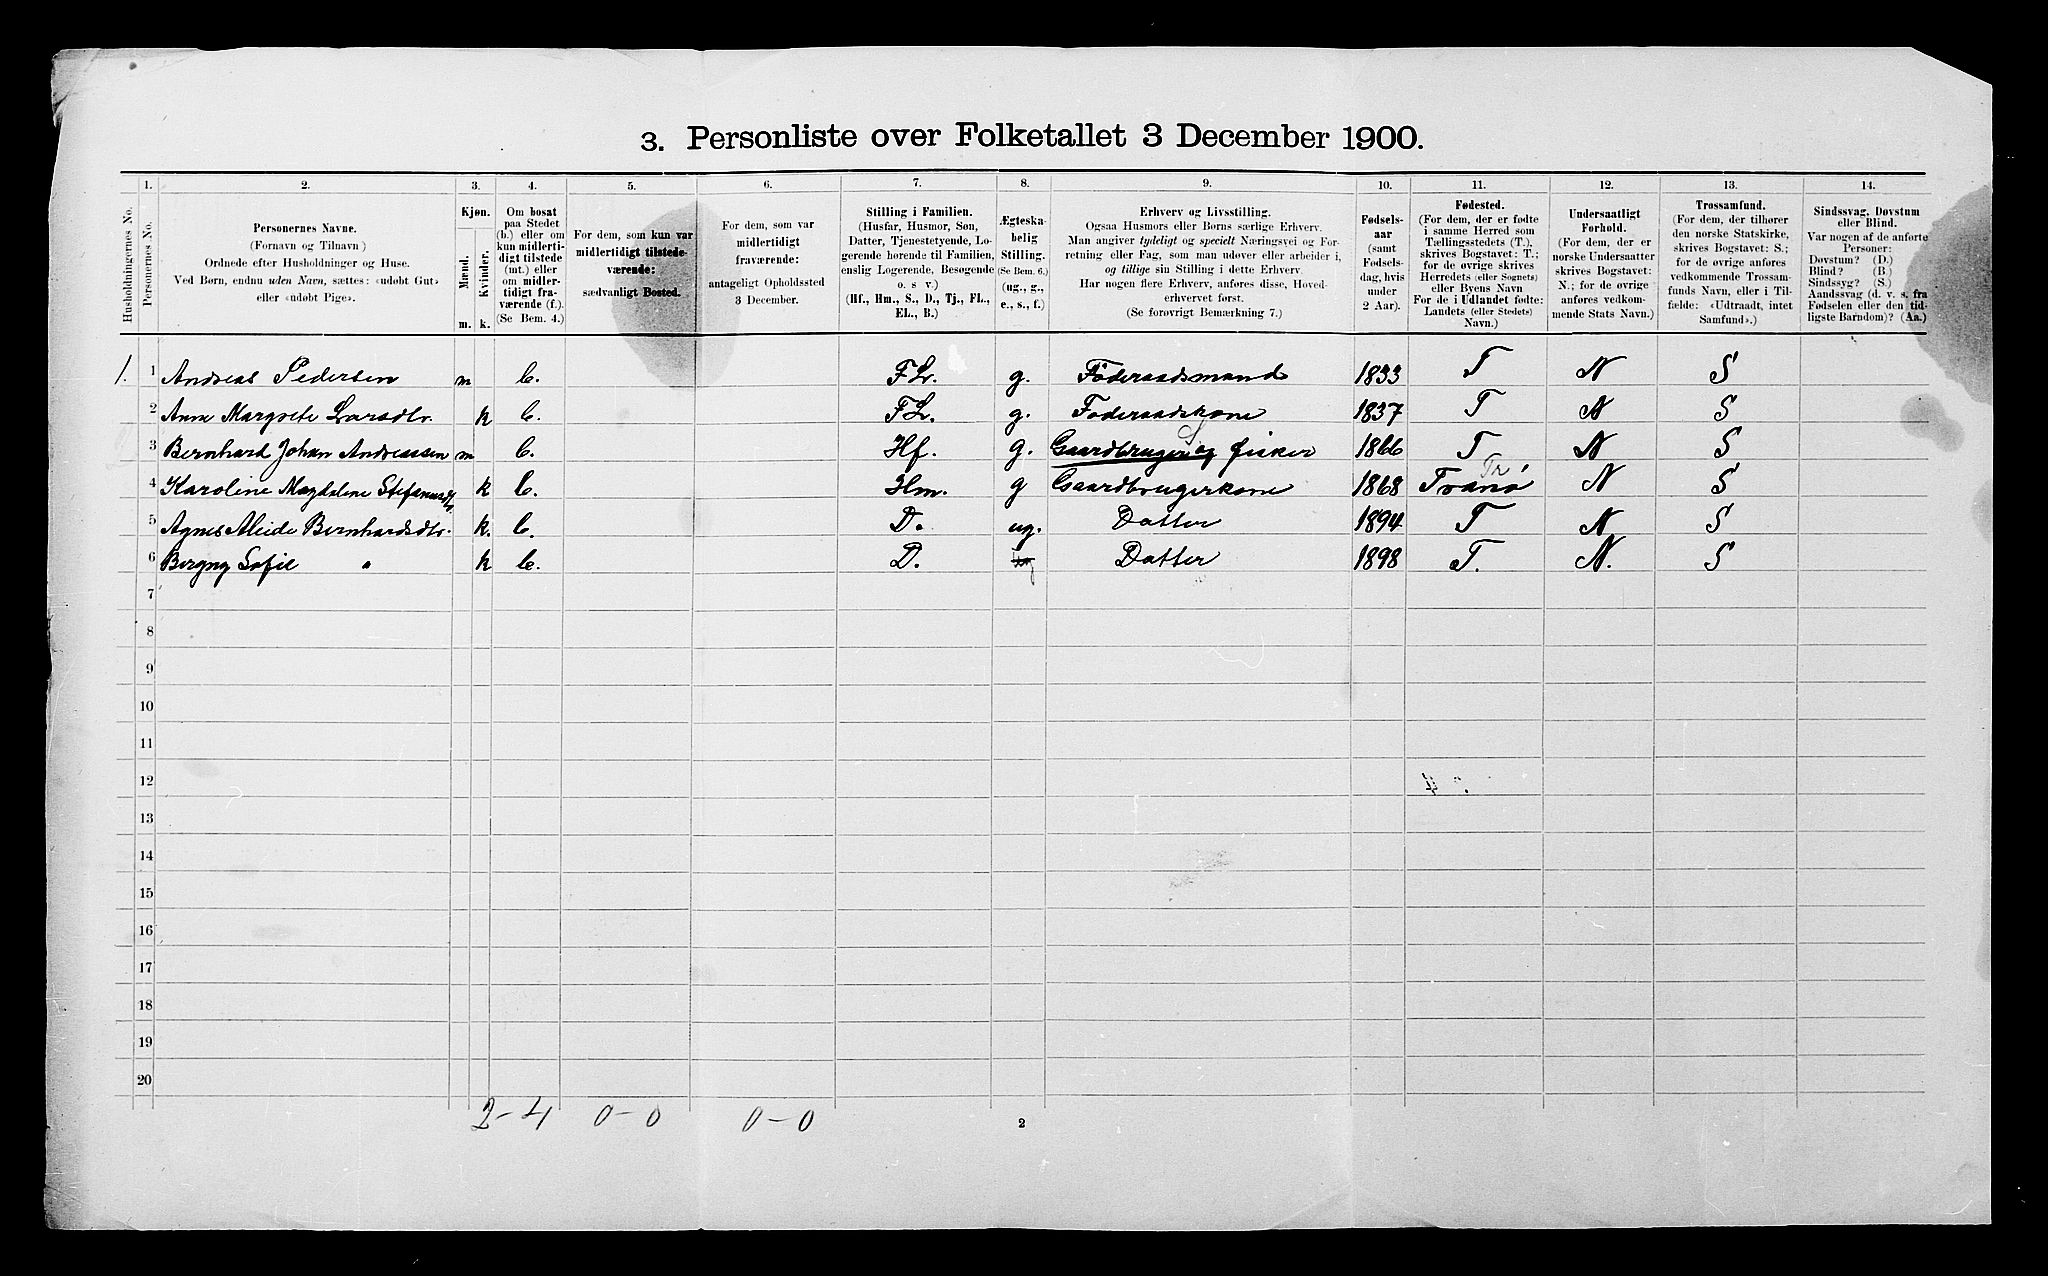 3. Personliste over Folketallet 3 December 1900.
1. 2. 3. 4. 5. 6. 7. 8. 9. 10. 11. 12. 13. 14.
Husholdningernes No.
Personernes No.
Personernes Navne.
(Fornavn og Tilnavn)
Ordnede efter Husholdninger og Huse.
Ved Børn, endnu uden Navn, sættes: «udøbt Gut»
eller «udøbt Pige».
Kjøn.
Mænd.
Kvinder.
m. k.
Om bosat
paa Stedet
(b.) eller om
kun midlerti-
digt tilstede
(mt.) eller
om midler-
tidigt fra-
værende (f.).
(Se Bem. 4.)
For dem, som kun var
midlertidigt tilstede-
værende:
sædvanligt Bosted.
For dem, som var
midlertidigt
fraværende:
antageligt Opholdssted
3 December.
Stilling i Familien.
(Husfar, Husmor, Søn,
Datter, Tjenestetyende, Lo-
gerende hørende til Familien,
enslig Logerende, Besøgende
o. s v.)
(Hf., Hm., S., D., Tj., Fl.,
EL., B.)
Ægteska-
belig
Stilling.
(Se Bem. 6.)
(ug., g.,
e., s., f.)
Erhverv og Livsstilling.
Ogsaa Husmors eller Børns særlige Erhverv.
Man angiver tydeligt og specielt Næringsvei og For-
retning eller Fag, som man udøver eller arbeider i,
og tillige sin Stilling i dette Erhverv.
Har nogen flere Erhverv, anføres disse, Hoved-
erhvervet først.
(Se forøvrigt Bemærkning 7.)
Fødsels-
aar
(samt
Fødsels-
dag, hvis
under
2 Aar).
Fødested.
(For dem, der er fødte
i samme Herred som
Tællingsstedets (T.),
skrives Bogstavet: T.;
for de øvrige skrives
Herredets (eller Sognets)
eller Byens Navn
For de i Udlandet fødte:
Landets (eller Stedets)
Navn.)
Undersaatligt
Forhold.
(For dem, der er
norske Undersaatter
skrives Bogstavet:
N.; for de øvrige
anføres vedkom-
mende Stats Navn.)
Trossamfund.
(For dem, der tilhører
den norske Statskirke,
skrives Bogstavet: S.;
for de øvrige anføres
vedkommende Trossam-
funds Navn, eller i Til-
fælde: «Udtraadt, intet
Samfund».)
Sindssvag, Døvstum
eller Blind.
Var nogen af de anførte
Personer:
Døvstum? (D.)
Blind? (B.)
Sindssyg? (S.)
Aandssvag (d. v. s. fra
Fødselen eller den tid-
ligste Barndom)? (Aa.)
1. 1 Andreas Pedersen m b. FL. g. Föderaadsmand 1833 T N S
2 Anne Margrete Larsdtr. k b. FL. g. Foderaadskone 1837 T N S
3 Bernhard Johan Andreassen m b. Hf. g. Gaardbruger og Fisker 1866 T N S
4 Karoline Magdalene Stefanusdtr k b. Hm. g Gaardbrugerkone 1868 Tranö Tr N S
5 Agnes Aleide Bernhardsdtr. k. b. D. ug. Datter 1894 T N S
6 Bergny Sofie " k b. D. ug Datter 1898 T. N. S
7
8
9
10
11
12
13
14
15
16
17
18
19
20
2-4 0-0 0-0
2